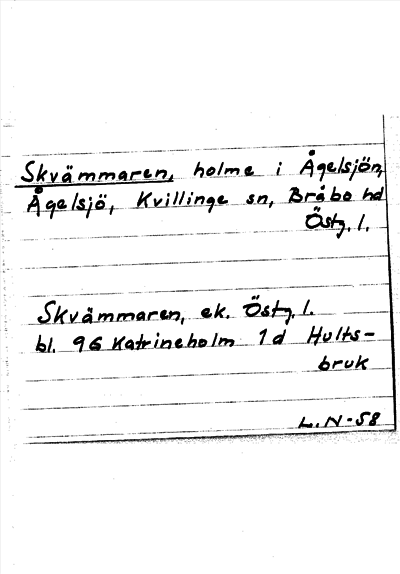 Skvämmaren, holme i Ågelsjön,
Ågelsjö, Kvillinge sn, Bråbo hd
Östg. l.
Skvämmaren, ek. Östg. l.
bl. 96 Katrineholm 1d Hults-
bruk
L. N-58